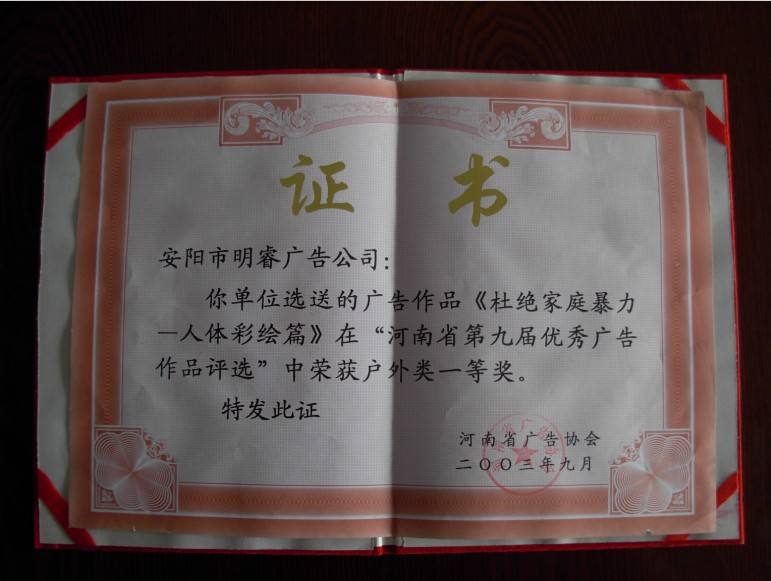 证 书
安阳市明睿广告公司：
你单位选送的广告作品《杜绝家庭暴力
—人体彩绘篇》在“河南省第九届优秀广告
作品评选”中荣获户外类一等奖。
特发此证
河南省广告协会
二〇〇三年九月